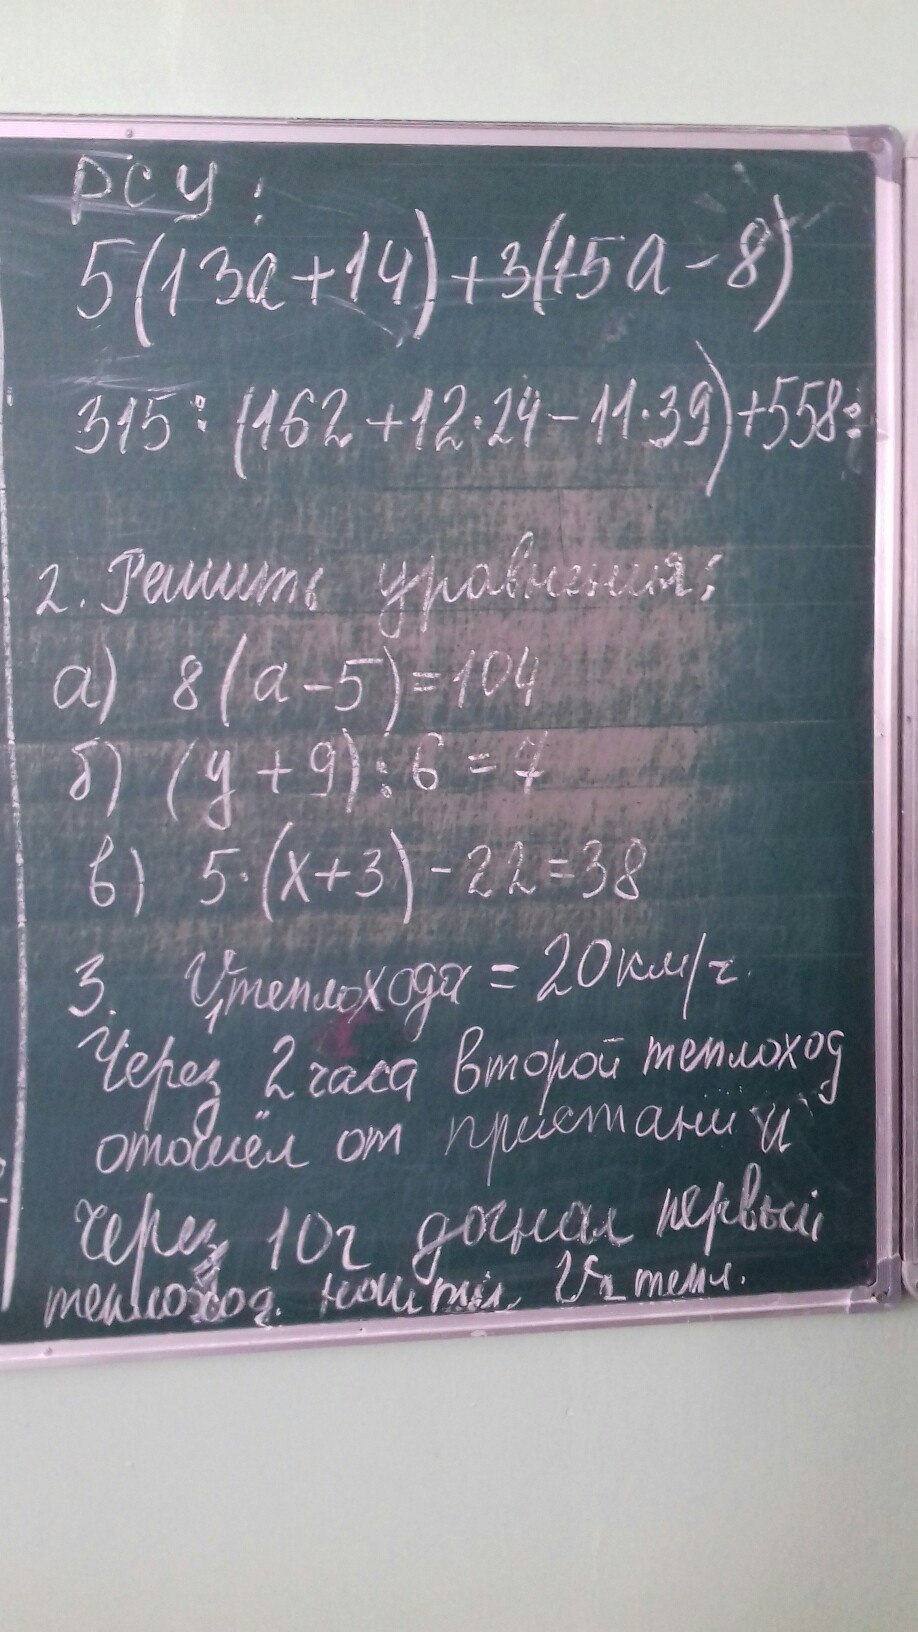 РСУ:
5(13a+14)+3(15a-8)
315:(162+12·24-11·39)+558:
2. Решить уравнения:
а) 8(a-5)=104
б) (y+9):6=7
в) 5·(x+3)-22=38
3. V₁теплохода = 20км/ч.
Через 2 часа второй теплоход
отошёл от пристани и
через 10ч догнал первый
теплоход. найти V₂ тепл.